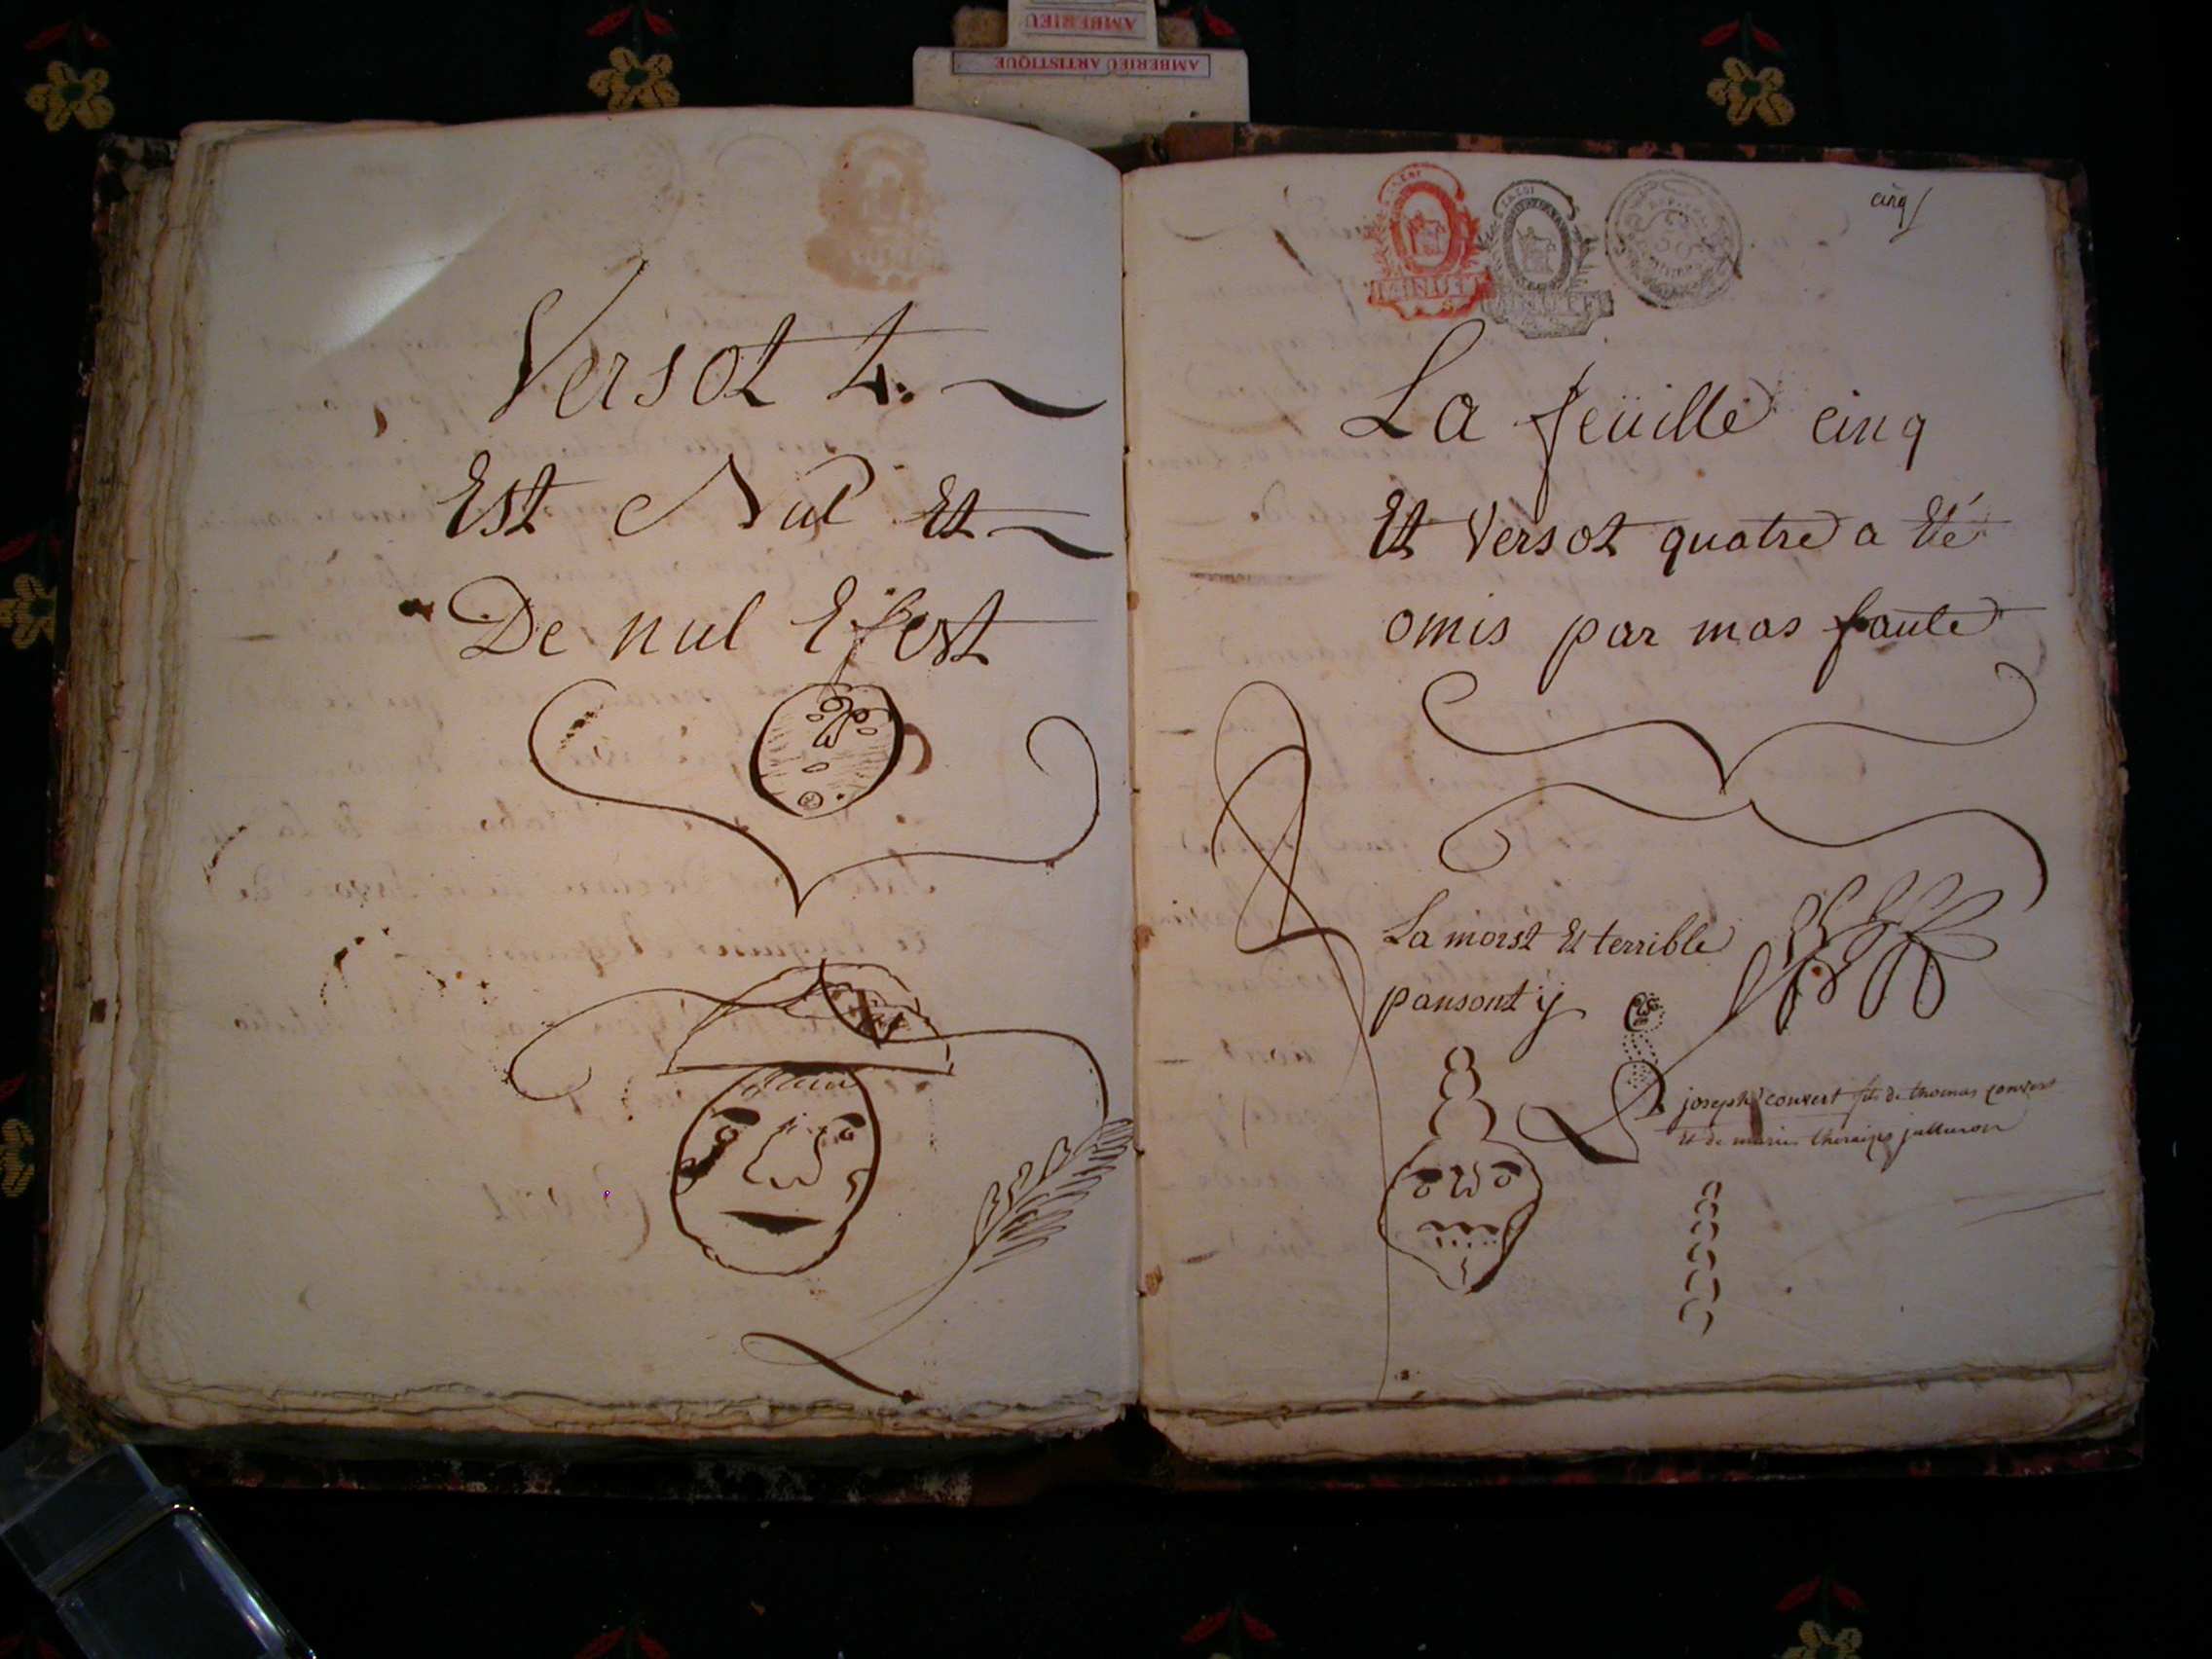 AMBERIEU
AMBERIEU ARTISTIQUE
Versot 4.
Est Nul Et
De nul Efest
cinq
La feüille cinq
Et Versot quatre a Eté
omis par mas faute
La morst Et terrible
pansont ÿ
joseph convert fils de thomas convert
et de marie